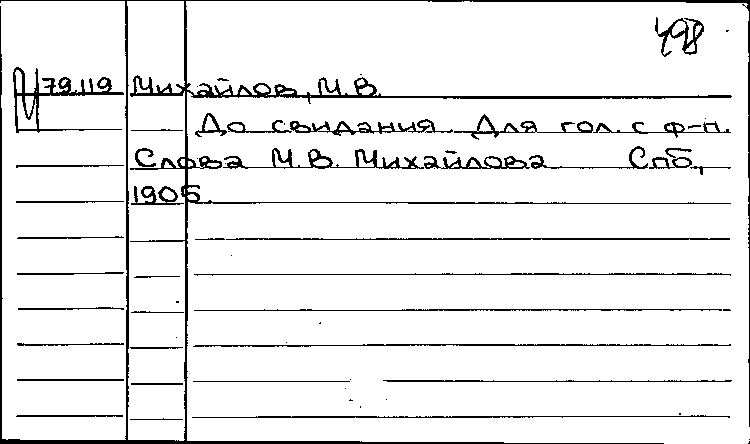 498
79.119 Михайлов, М.В.
До свидания. Для гол. с ф-п.
Слова М.В. Михайлова Спб.,
1905.